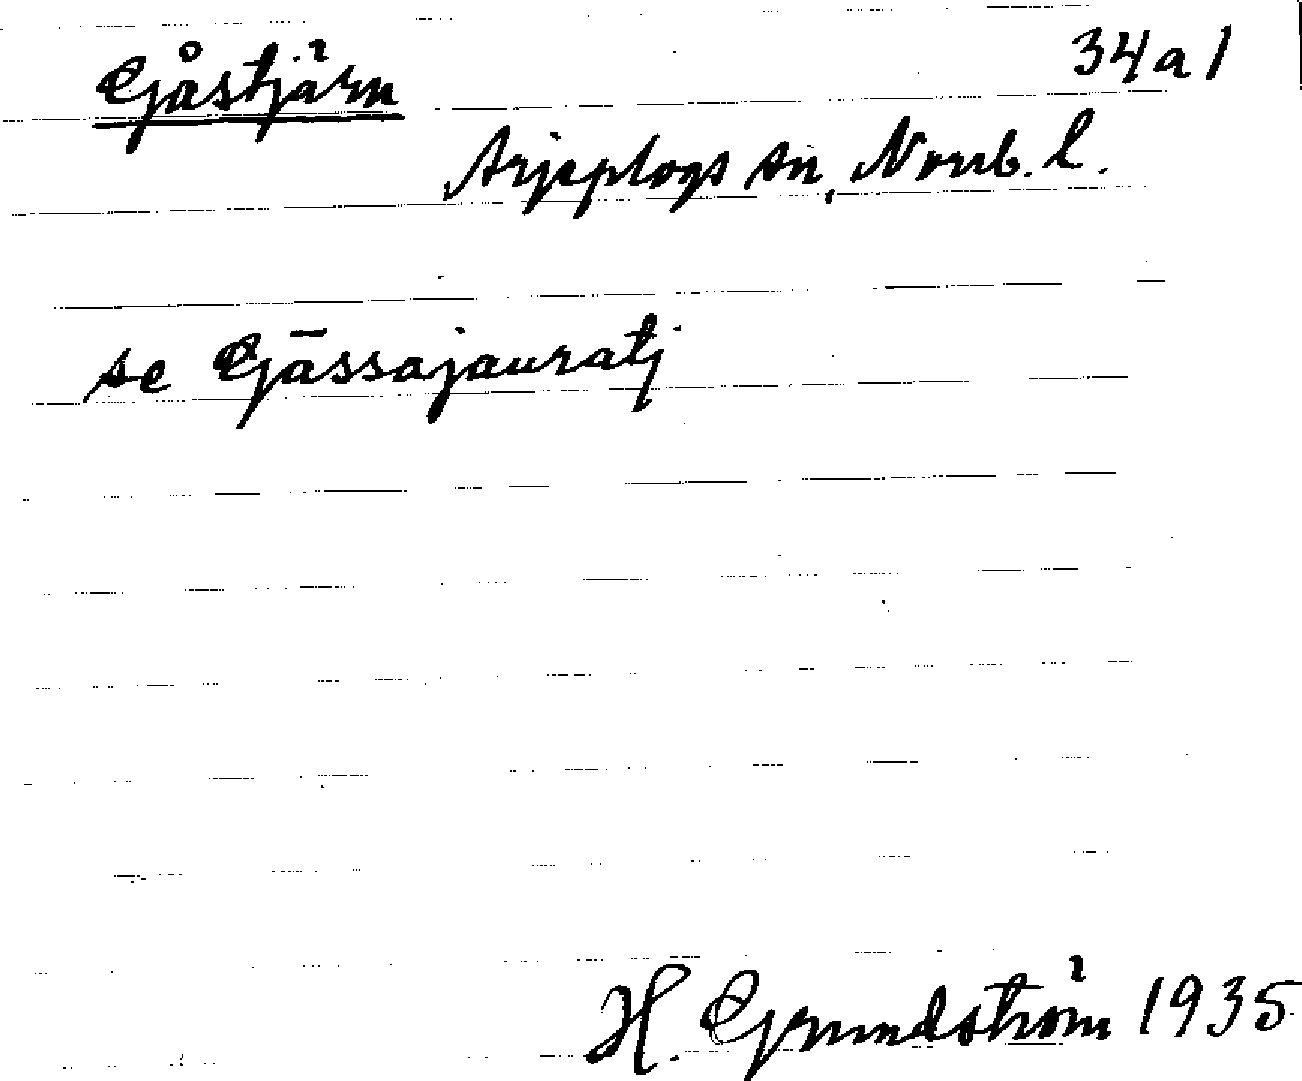 Gåstjärn 34a1
Arjeplogs sn, Norrb. l.
se Gāssajauratj
H. Grundström 1935